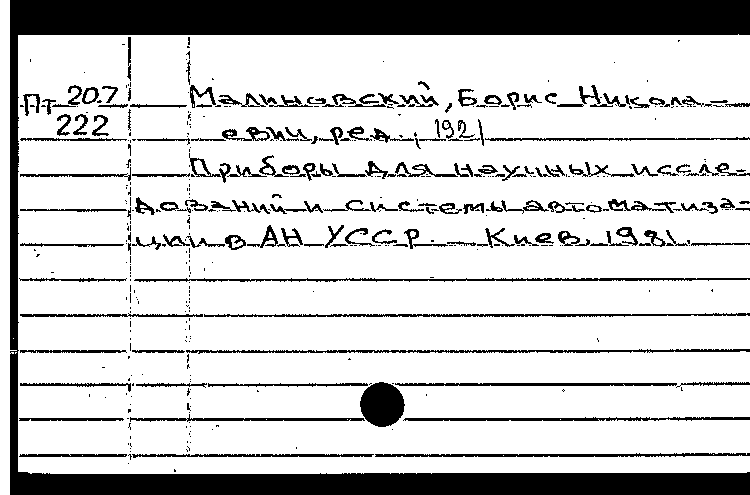 Пт 207 Малиновский, Борис Никола-
222 евич, ред., 1921
Приборы для научных иссле-
дований и системы автоматиза-
ции в АН УССР. – Киев, 1981.